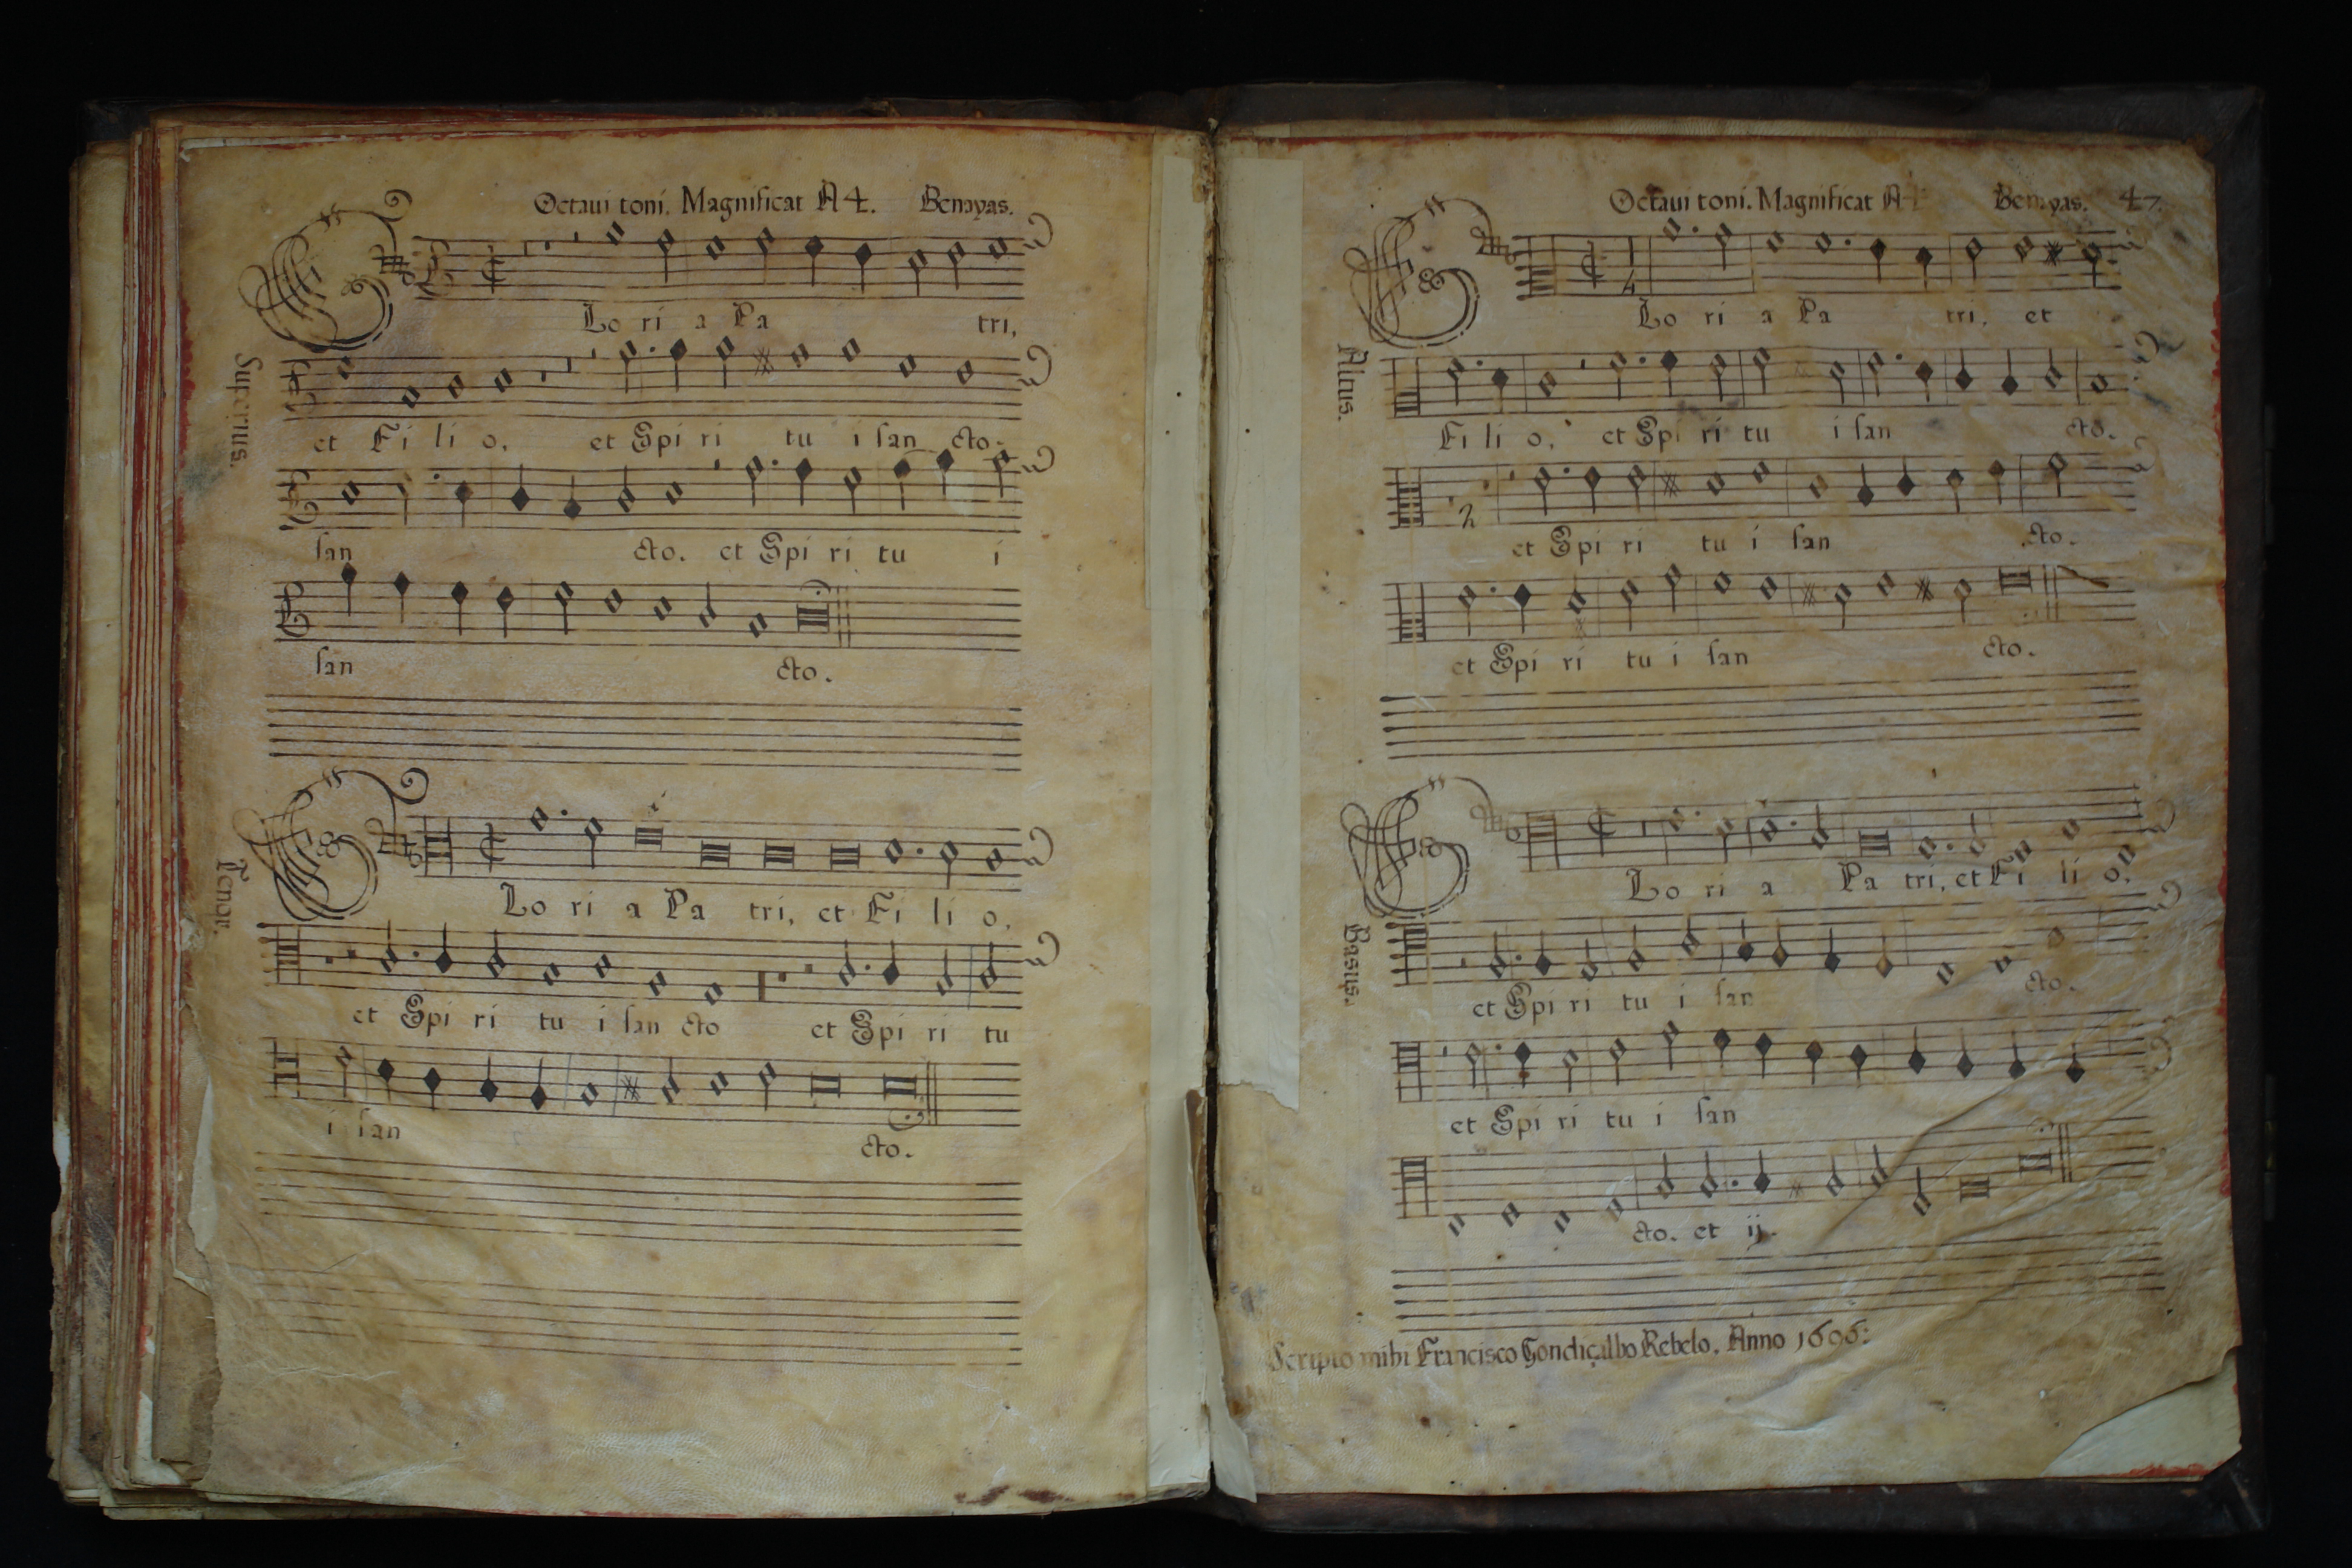 Octaui toni. Magnificat A 4. Benayas.
Lo ri a Pa tri,
Superius.
et Fi li o, et Spi ri tu i san cto.
san cto. et Spi ri tu i
san cto.
Lo ri a Pa tri, et Fi li o,
Tenor.
et Spi ri tu i san cto et Spi ri tu
i san cto.
Octaui toni. Magnificat A Benayas. 47.
Lo ri a Pa tri, et
Altus.
Fi li o, et Spi ri tu i san cto.
et Spi ri tu i san cto.
et Spi ri tu i san cto.
Lo ri a Pa tri, et Fi li o.
Basus.
et Spi ri tu i san cto.
et Spi ri tu i san
cto. et ij.
Scripto mihi Francisco Gondiçalbo Rebelo. Anno 1606: